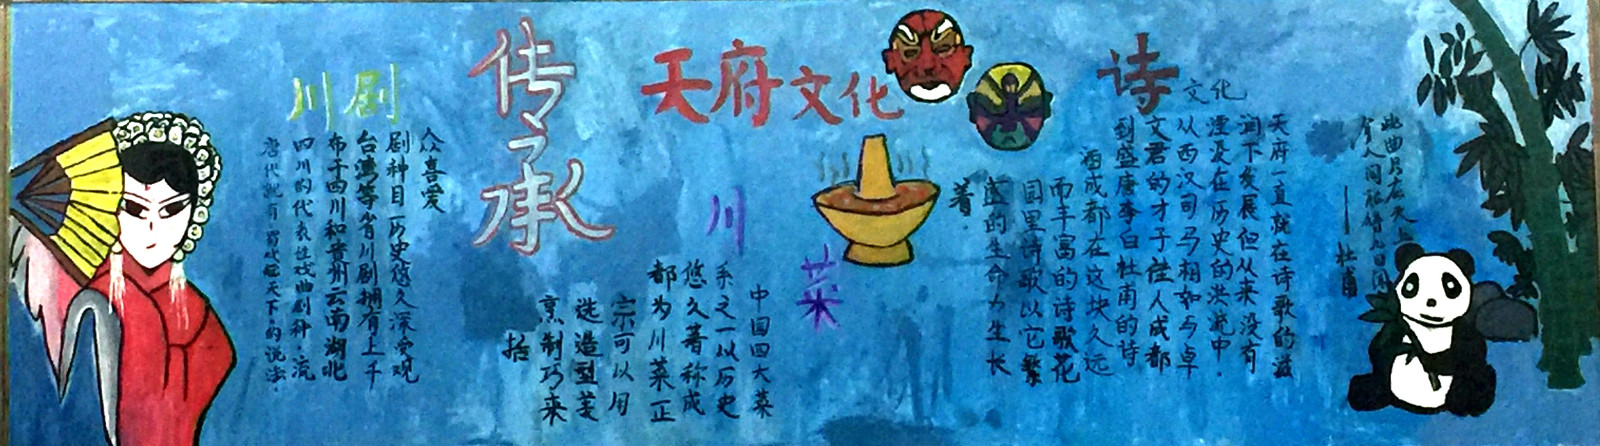 川剧
唐代就有蜀戏冠天下的说法.
四川的代表性戏曲剧种 流
布于四川和贵州云南湖北
台湾等省川剧拥有上千
剧种目 历史悠久深受观
众喜爱
传承
天府文化
川菜
中国四大菜
系之一以历史
悠久著称成
都为川菜正
宗可以用
选造型美
烹制巧来
括
诗文化
天府一直就在诗歌的滋
润下发展但从来没有
湮没在历史的洪流中.
从西汉司马相如与卓
文君的才子佳人成都
到盛唐李白杜甫的诗
酒成都在这块久远
而丰富的诗歌花
园里诗歌以它繁
盛的生命力生长
着.
此曲只应天上
有人间能得几回闻
——杜甫